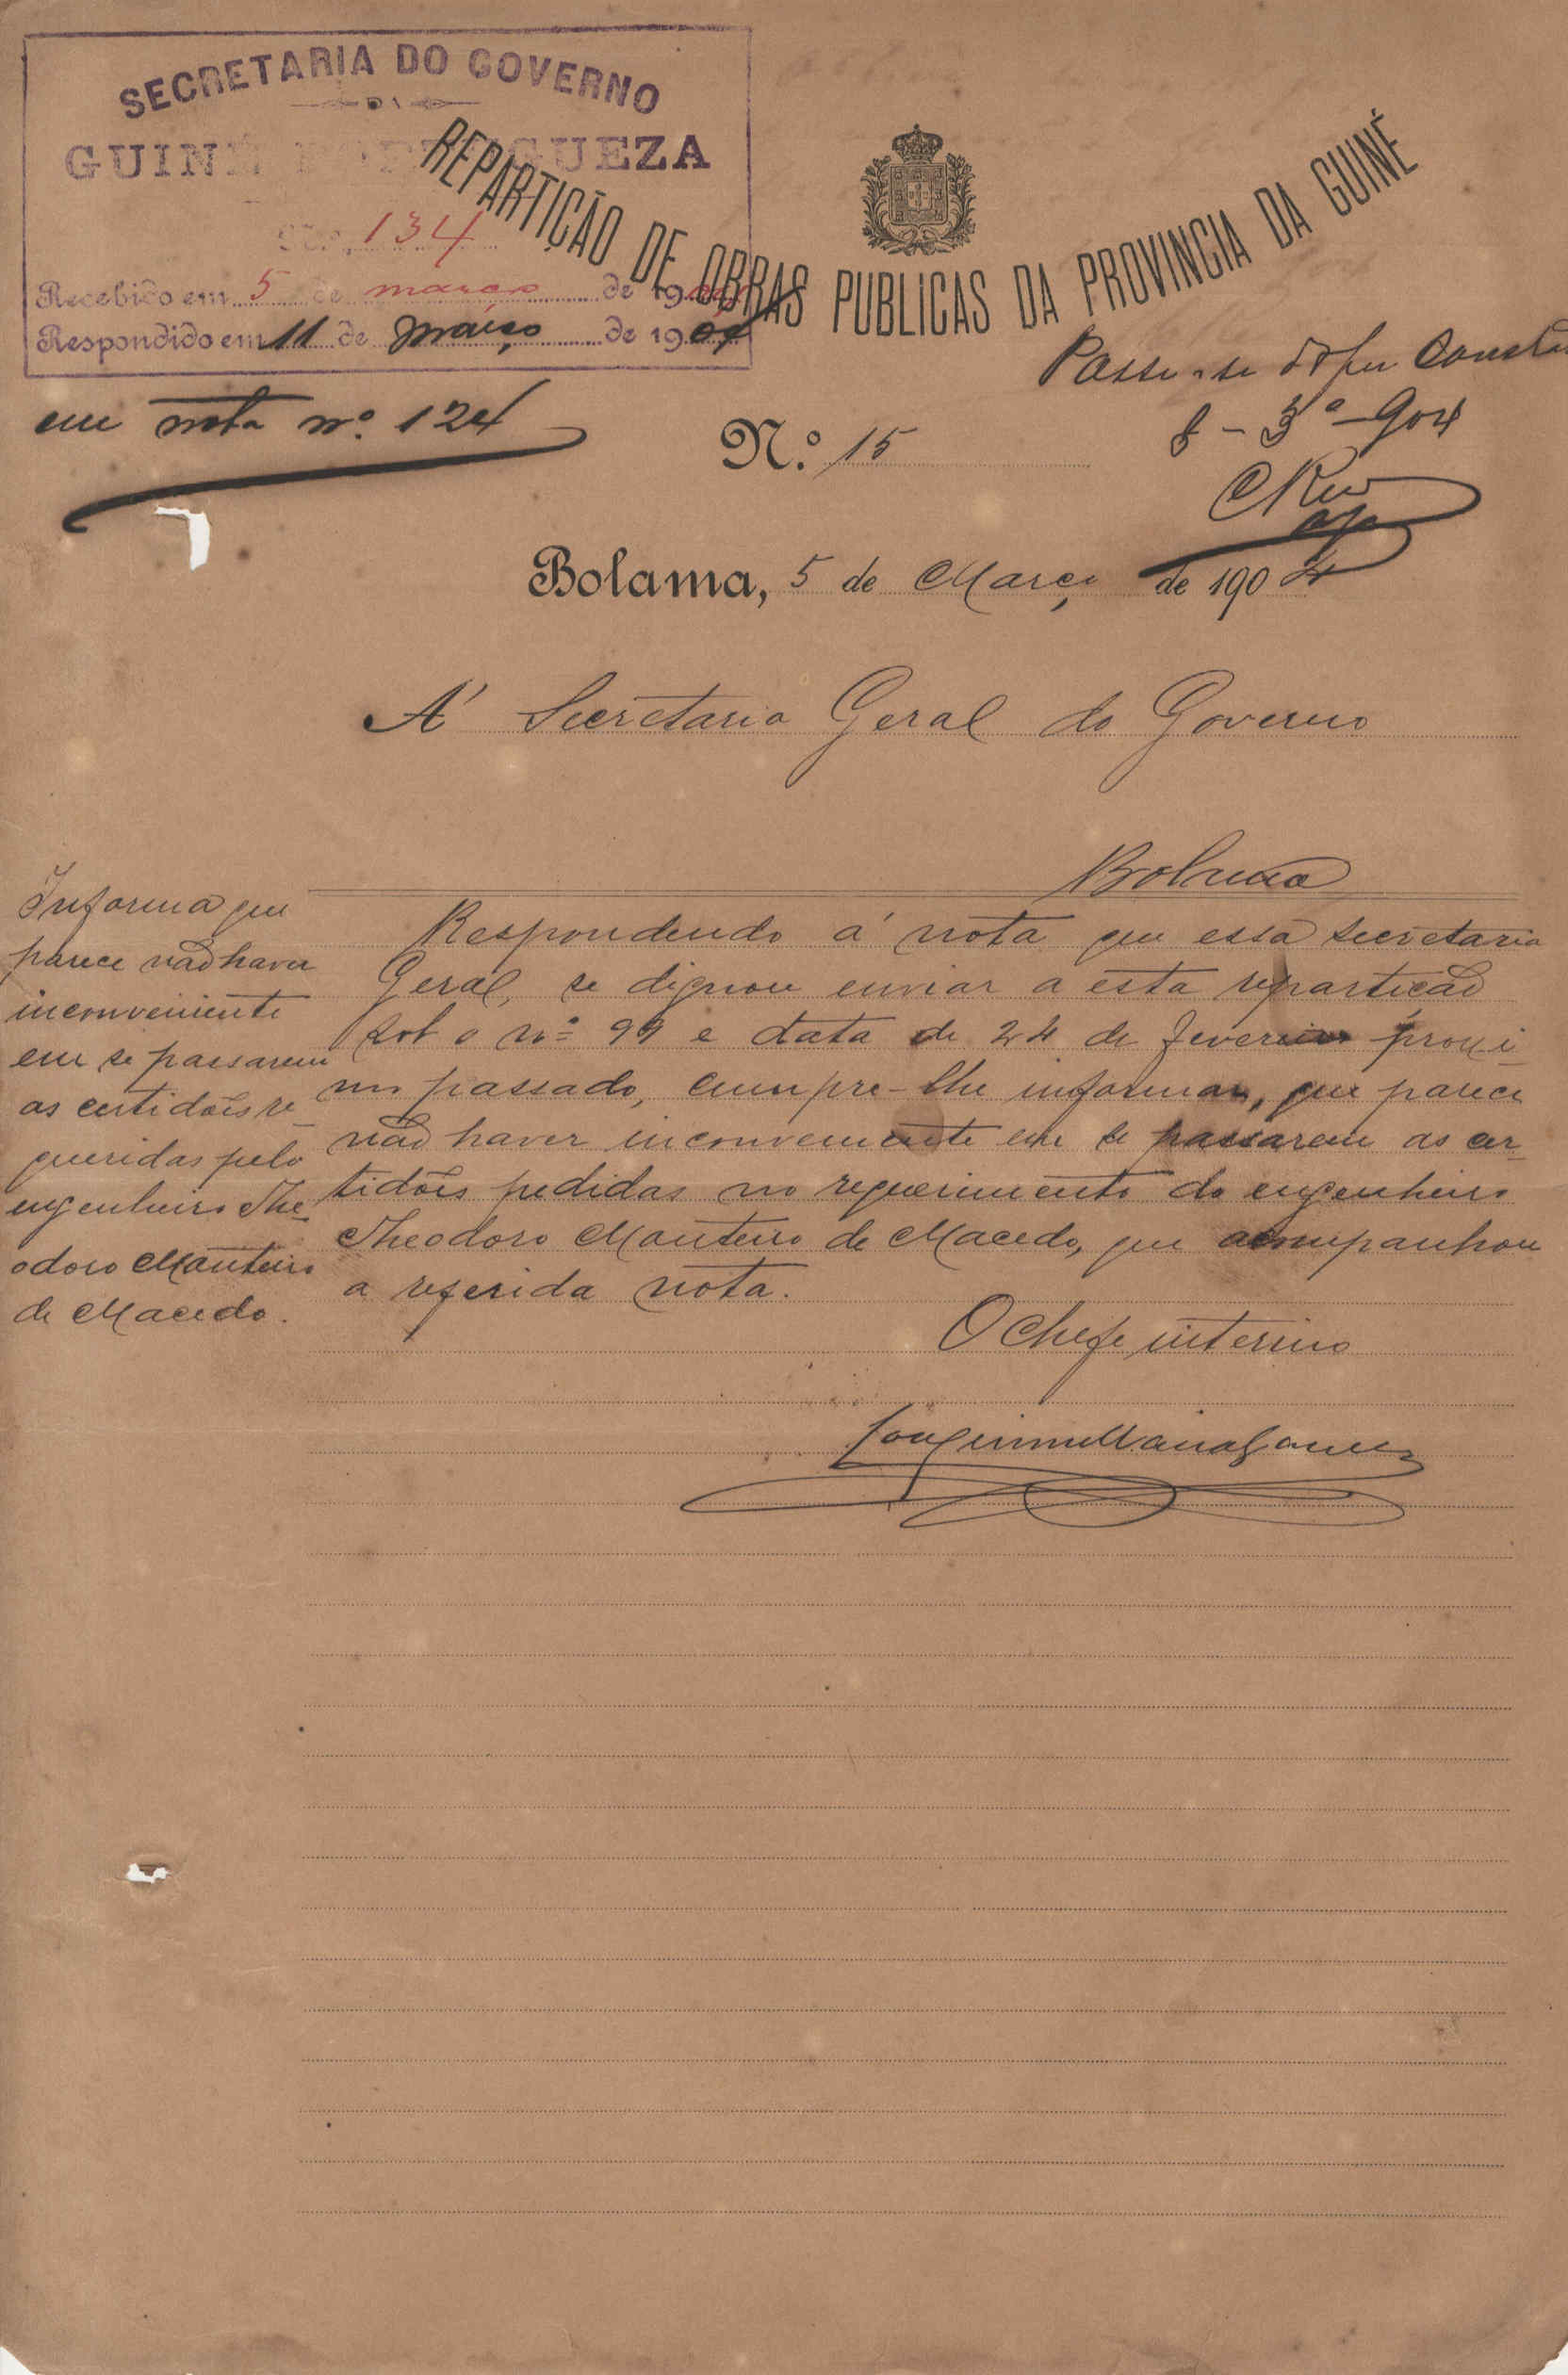 SECRETARIA DO GOVERNO
DA
GUINÉ PORTUGUEZA
N.º 134
Recebido em 5 de março de 1904
Respondido em 11 de março de 1904
em nota nº 124
REPARTIÇÃO DE OBRAS PUBLICAS DA PROVINCIA DA GUINÉ
Passe-se do que
8-3º-904
N.º 15
Bolama, 5 de Março de 1904
Á Secretaria Geral do Governo
Bolama
Informa que
parece não haver
inconveniente
em se passarem
as certidões re-
queridas pelo
engenheiro The-
odoro Monteiro
de Macedo.
Respondendo á nota que essa Secretaria
Geral, se dignou enviar a esta repartição
sob o nº 99 e data de 24 de Fevereiro proxi-
mo passado, cumpre-lhe informar, que parece
não haver inconveniente em se passarem as cer-
tidões pedidas no requerimento do engenheiro
Theodoro Monteiro de Macedo, que acompanhou
a referida nota.
O Chefe interino